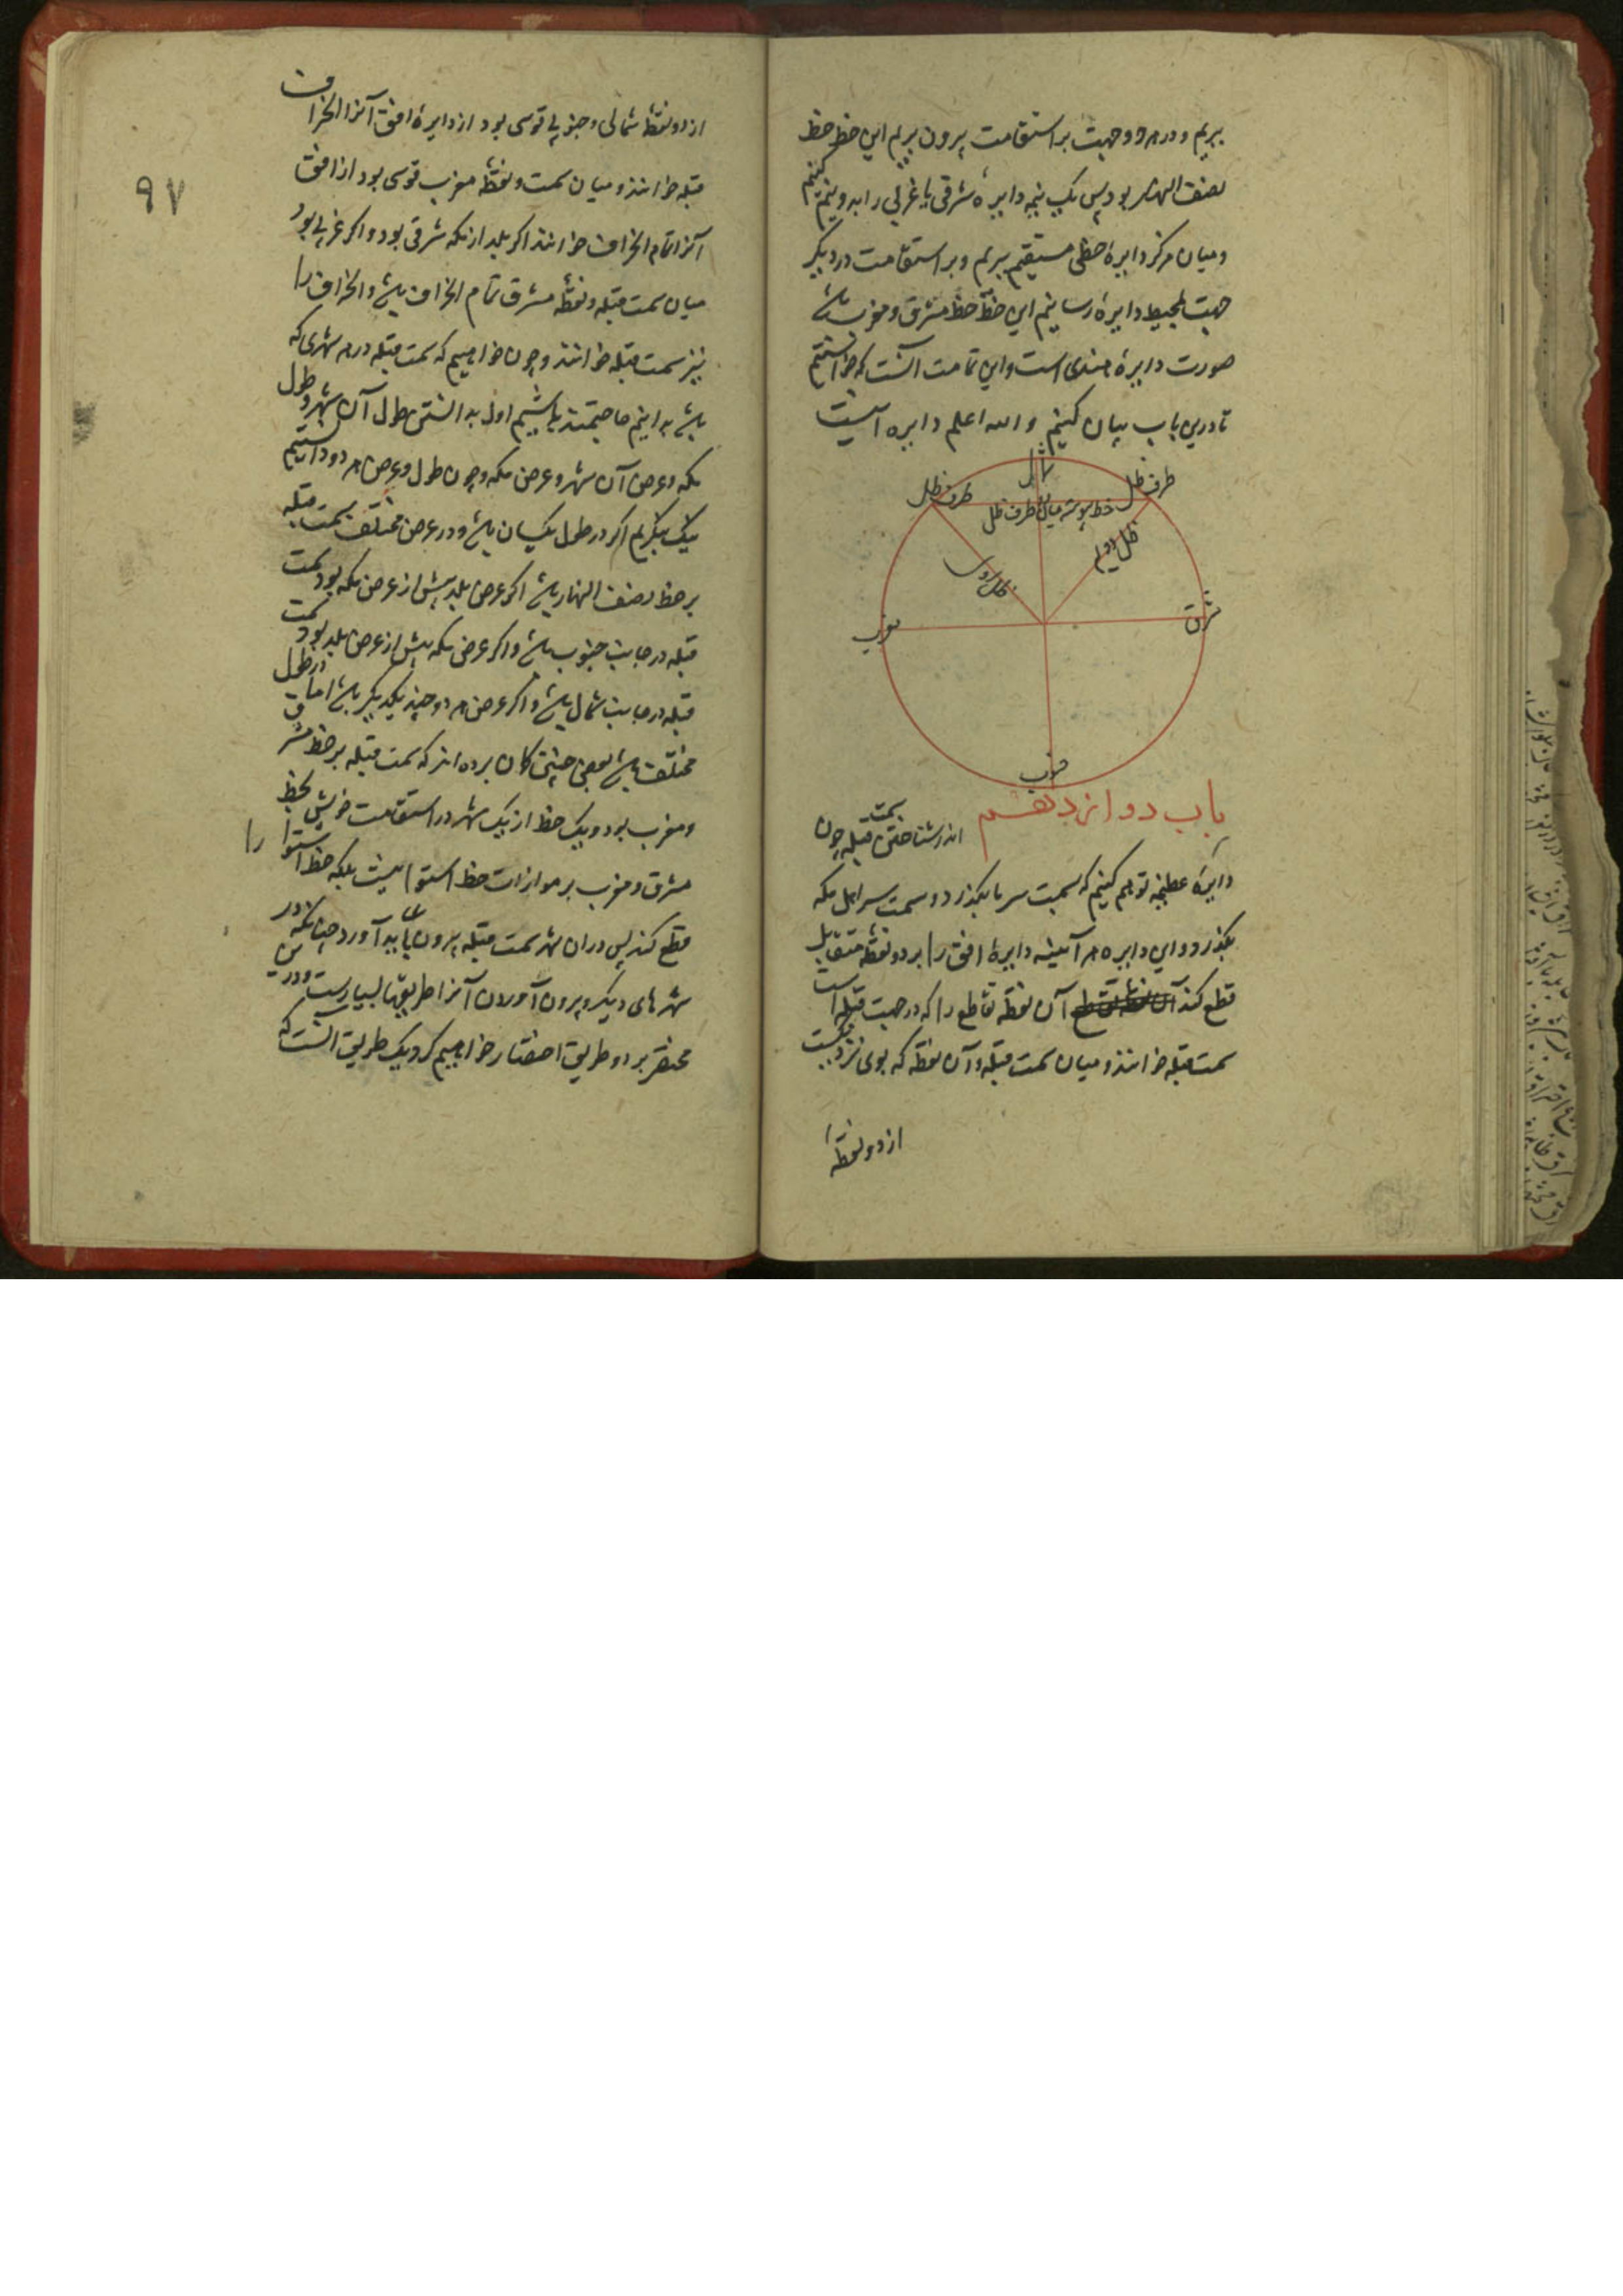 بریم و در هر دو جهت بر استقامت بیرون بریم این خط خط
نصف النهار بود پس یک نیمه دایره شرقی یا غربی را بدو نیم کنیم
و میان مرکز دایره خطی مستقیم بریم و بر استقامت در دیگر
جهت بمحیط دایره رسانیم این خط خط مشرق و مغرب باشد
صورت دایره هندی است و این تمامت آنست که خواستیم
تا درین باب بیان کنیم و الله اعلم دایره اینست
شمال
طرف ظل
طرف ظل
خط پیوسته میان دو طرف ظل
ظل دوم
ظل اول
مشرق
مغرب
جنوب
باب دوازدهم
اندر شناختن سمت قبله چون
دایرهٔ عظیمه توهم کنیم که بسمت سر ما بگذرد و سمت سر اهل مکه
بگذرد و این دایره هر آینه دایرهٔ افق را بر دو نقطه متقابل
قطع کند آن نقطه تقاطع را که در جهت قبله است
سمت قبله خوانند و میان سمت قبله و آن نقطه که بوی نزدیکست
از دو نقطه
۹۷
از دو نقطهٔ شمالی و جنوبی قوسی بود از دایرهٔ افق آنرا انحراف
قبله خوانند و میان سمت و نقطه مغرب قوسی بود از افق
آنرا تمام انحراف خوانند اگر بلد از مکه شرقی بود و اگر غربی بود
میان سمت قبله و نقطهٔ مشرق تمام انحراف باشد و انحراف را
نیز سمت قبله خوانند و چون خواهیم که سمت قبله در هر شهری که
باشد بدانیم حاجتمند باشیم اول بدانستن طول آن شهر و طول
مکه و عرض آن شهر و عرض مکه و چون طول و عرض هر دو دانستیم
نیک بنگریم اگر در طول یکسان باشد و در عرض مختلف سمت قبله
بر خط نصف النهار باشد اگر عرض بلد بیش از عرض مکه بود سمت
قبله در جانب جنوب باشد و اگر عرض مکه بیش از عرض بلد بود سمت
قبله در جانب شمال باشد و اگر عرض هر دو چند یکدیگر باشد اما در طول
مختلف باشد بعضی چنین گمان برده اند که سمت قبله بر خط مشرق
و مغرب بود و یک خط از یک شهر در استقامت خویش بخط
مشرق و مغرب بر موازات خط استوا نیست بلکه خط استوا را
قطع کند پس در ان شهر سمت قبله بیرون باید آورد چنانکه در
شهرهای دیگر و بیرون آوردن آنرا طریقها بسیارست و درین
مختصر بر دو طریق اختصار خواهیم کرد یک طریق آنست که